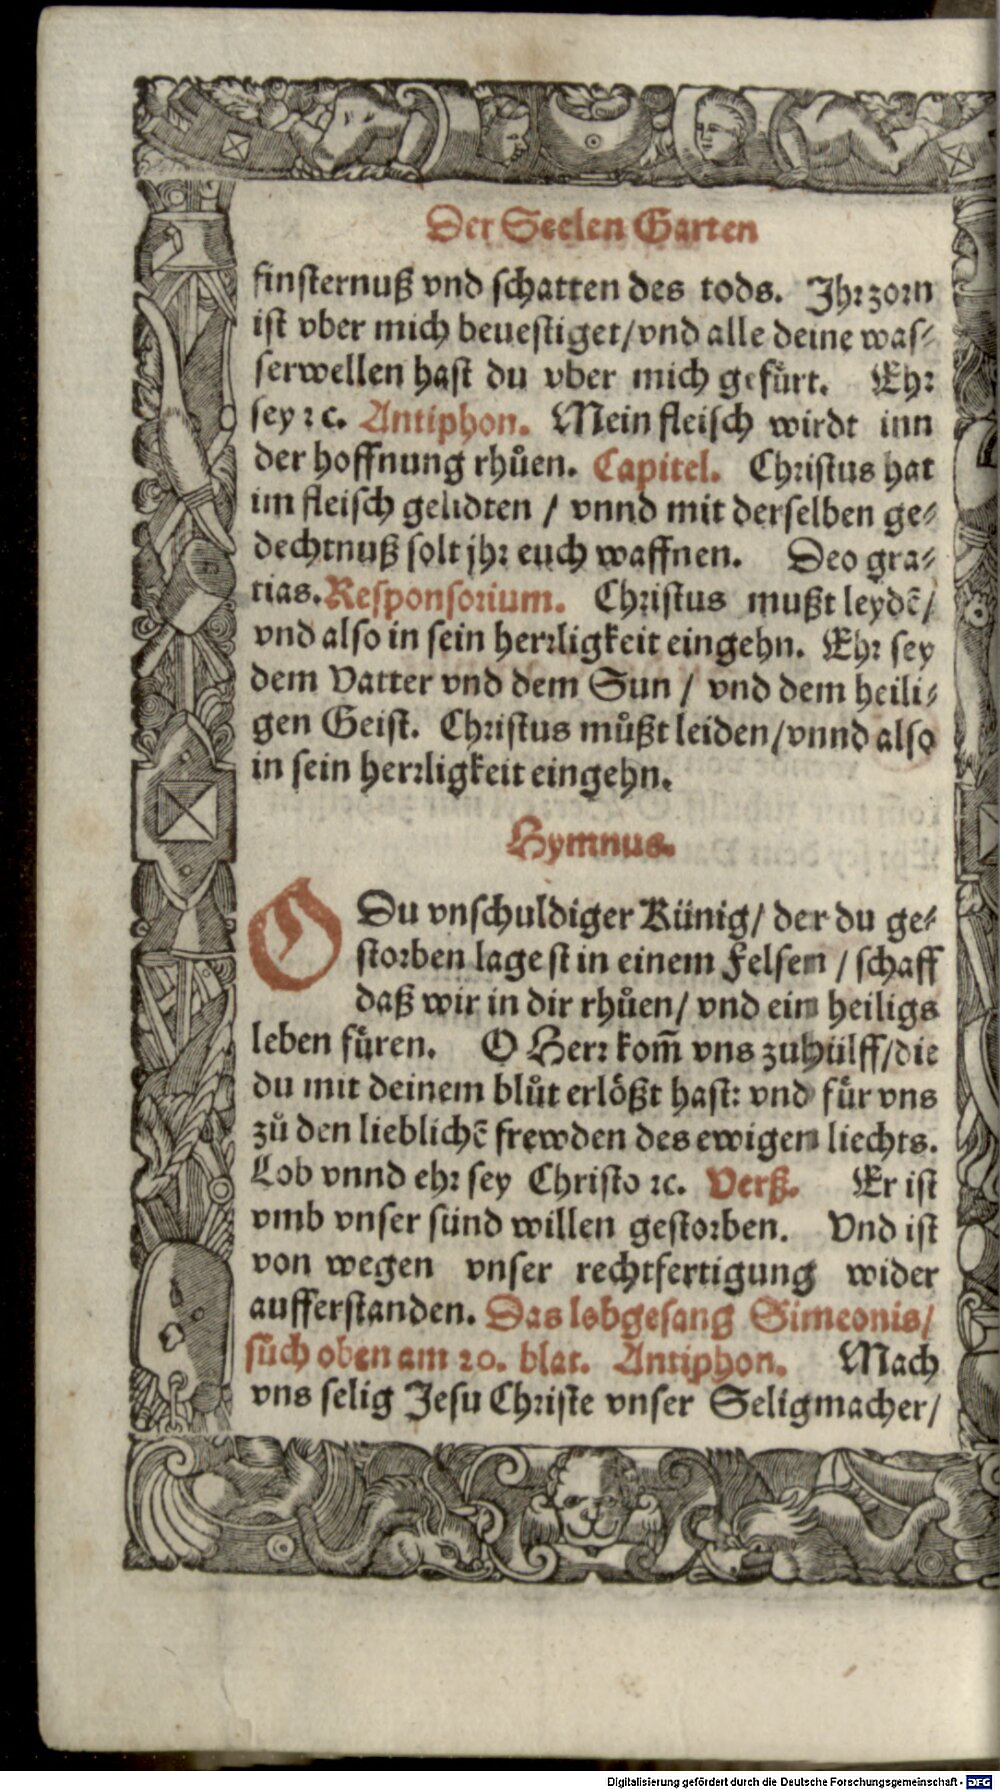 Der Seelen Garten
finsternuß vnd schatten des tods. Jhr zorn
ist vber mich beuestiget/vnd alle deine was⸗
serwellen hast du vber mich gefürt. Ehr
sey ꝛc. Antiphon. Mein fleisch wirdt inn
der hoffnung rhůen. Capitel. Christus hat
im fleisch gelidten / vnnd mit derselben ge⸗
dechtnuß solt jhr euch waffnen. Deo gra⸗
tias. Responsorium. Christus mußt leydē/
vnd also in sein herrligkeit eingehn. Ehr sey
dem Vatter vnd dem Sun / vnd dem heili⸗
gen Geist. Christus můßt leiden/vnnd also
in sein herrligkeit eingehn.
Hymnus.
O Du vnschuldiger Künig/ der du ge⸗
storben lagest in einem Felsen / schaff
daß wir in dir rhůen/ vnd ein heiligs
leben füren. O Herr kom̄ vns zuhülff/die
du mit deinem blůt erlößt hast: vnd für vns
zů den lieblichē frewden des ewigen liechts.
Lob vnnd ehr sey Christo ꝛc. Verß. Er ist
vmb vnser sünd willen gestorben. Vnd ist
von wegen vnser rechtfertigung wider
aufferstanden. Das lobgesang Simeonis/
sůch oben am 20. blat. Antiphon. Mach
vns selig Jesu Christe vnser Seligmacher/
Digitalisierung gefördert durch die Deutsche Forschungsgemeinschaft - DFG